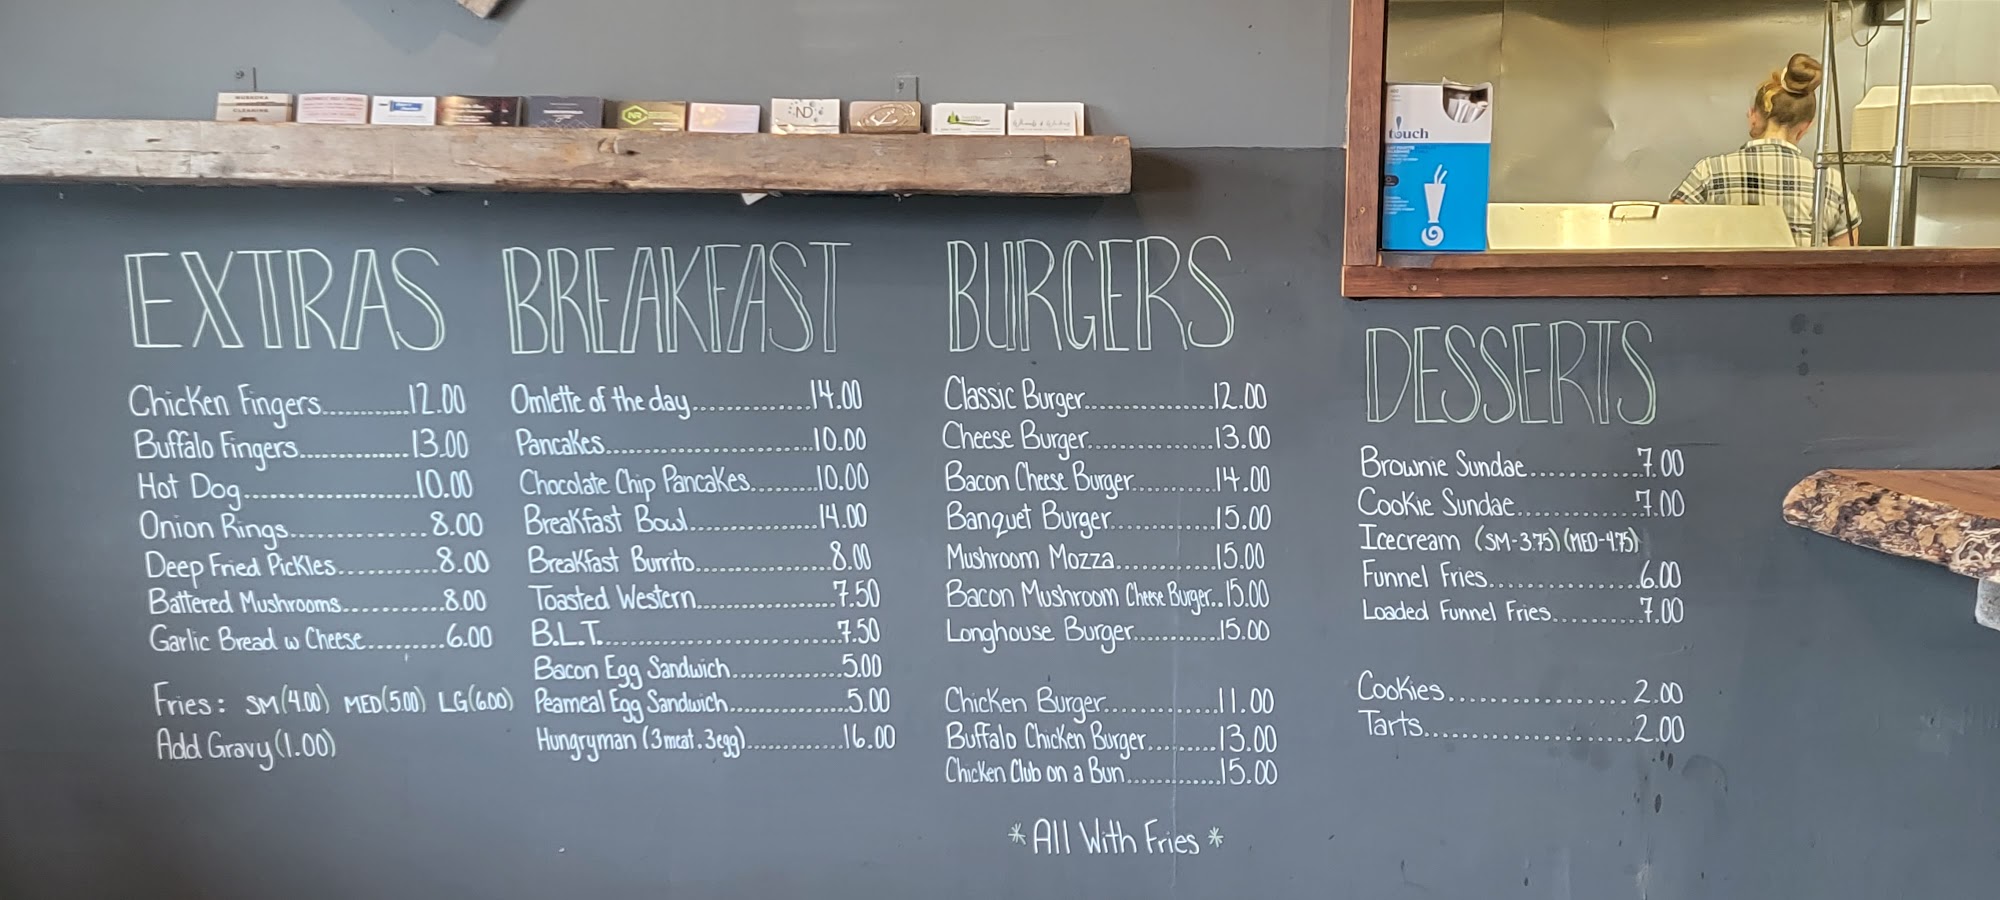 MUSKOKA
CLEANING
NR
ND
touch
EXTRAS
Chicken Fingers............12.00
Buffalo Fingers..............13.00
Hot Dog......................10.00
Onion Rings..................8.00
Deep Fried Pickles............8.00
Battered Mushrooms.............8.00
Garlic Bread w Cheese..........6.00
Fries: SM(4.00) MED(5.00) LG(6.00)
Add Gravy(1.00)
BREAKFAST
Omlette of the day...............14.00
Pancakes...........................10.00
Chocolate Chip Pancakes.........10.00
Breakfast Bowl.................14.00
Breakfast Burrito..................8.00
Toasted Western..................7.50
B.L.T..............................7.50
Bacon Egg Sandwich..............5.00
Peameal Egg Sandwich...............5.00
Hungryman (3 meat . 3 egg).............16.00
BURGERS
Classic Burger.................12.00
Cheese Burger.................13.00
Bacon Cheese Burger............14.00
Banquet Burger..............15.00
Mushroom Mozza..............15.00
Bacon Mushroom Cheese Burger..15.00
Longhouse Burger............15.00
Chicken Burger................11.00
Buffalo Chicken Burger.........13.00
Chicken Club on a Bun.............15.00
* All With Fries *
DESSERTS
Brownie Sundae.............7.00
Cookie Sundae..............7.00
Icecream (SM-3.75)(MED-4.75)
Funnel Fries....................6.00
Loaded Funnel Fries............7.00
Cookies......................2.00
Tarts.........................2.00